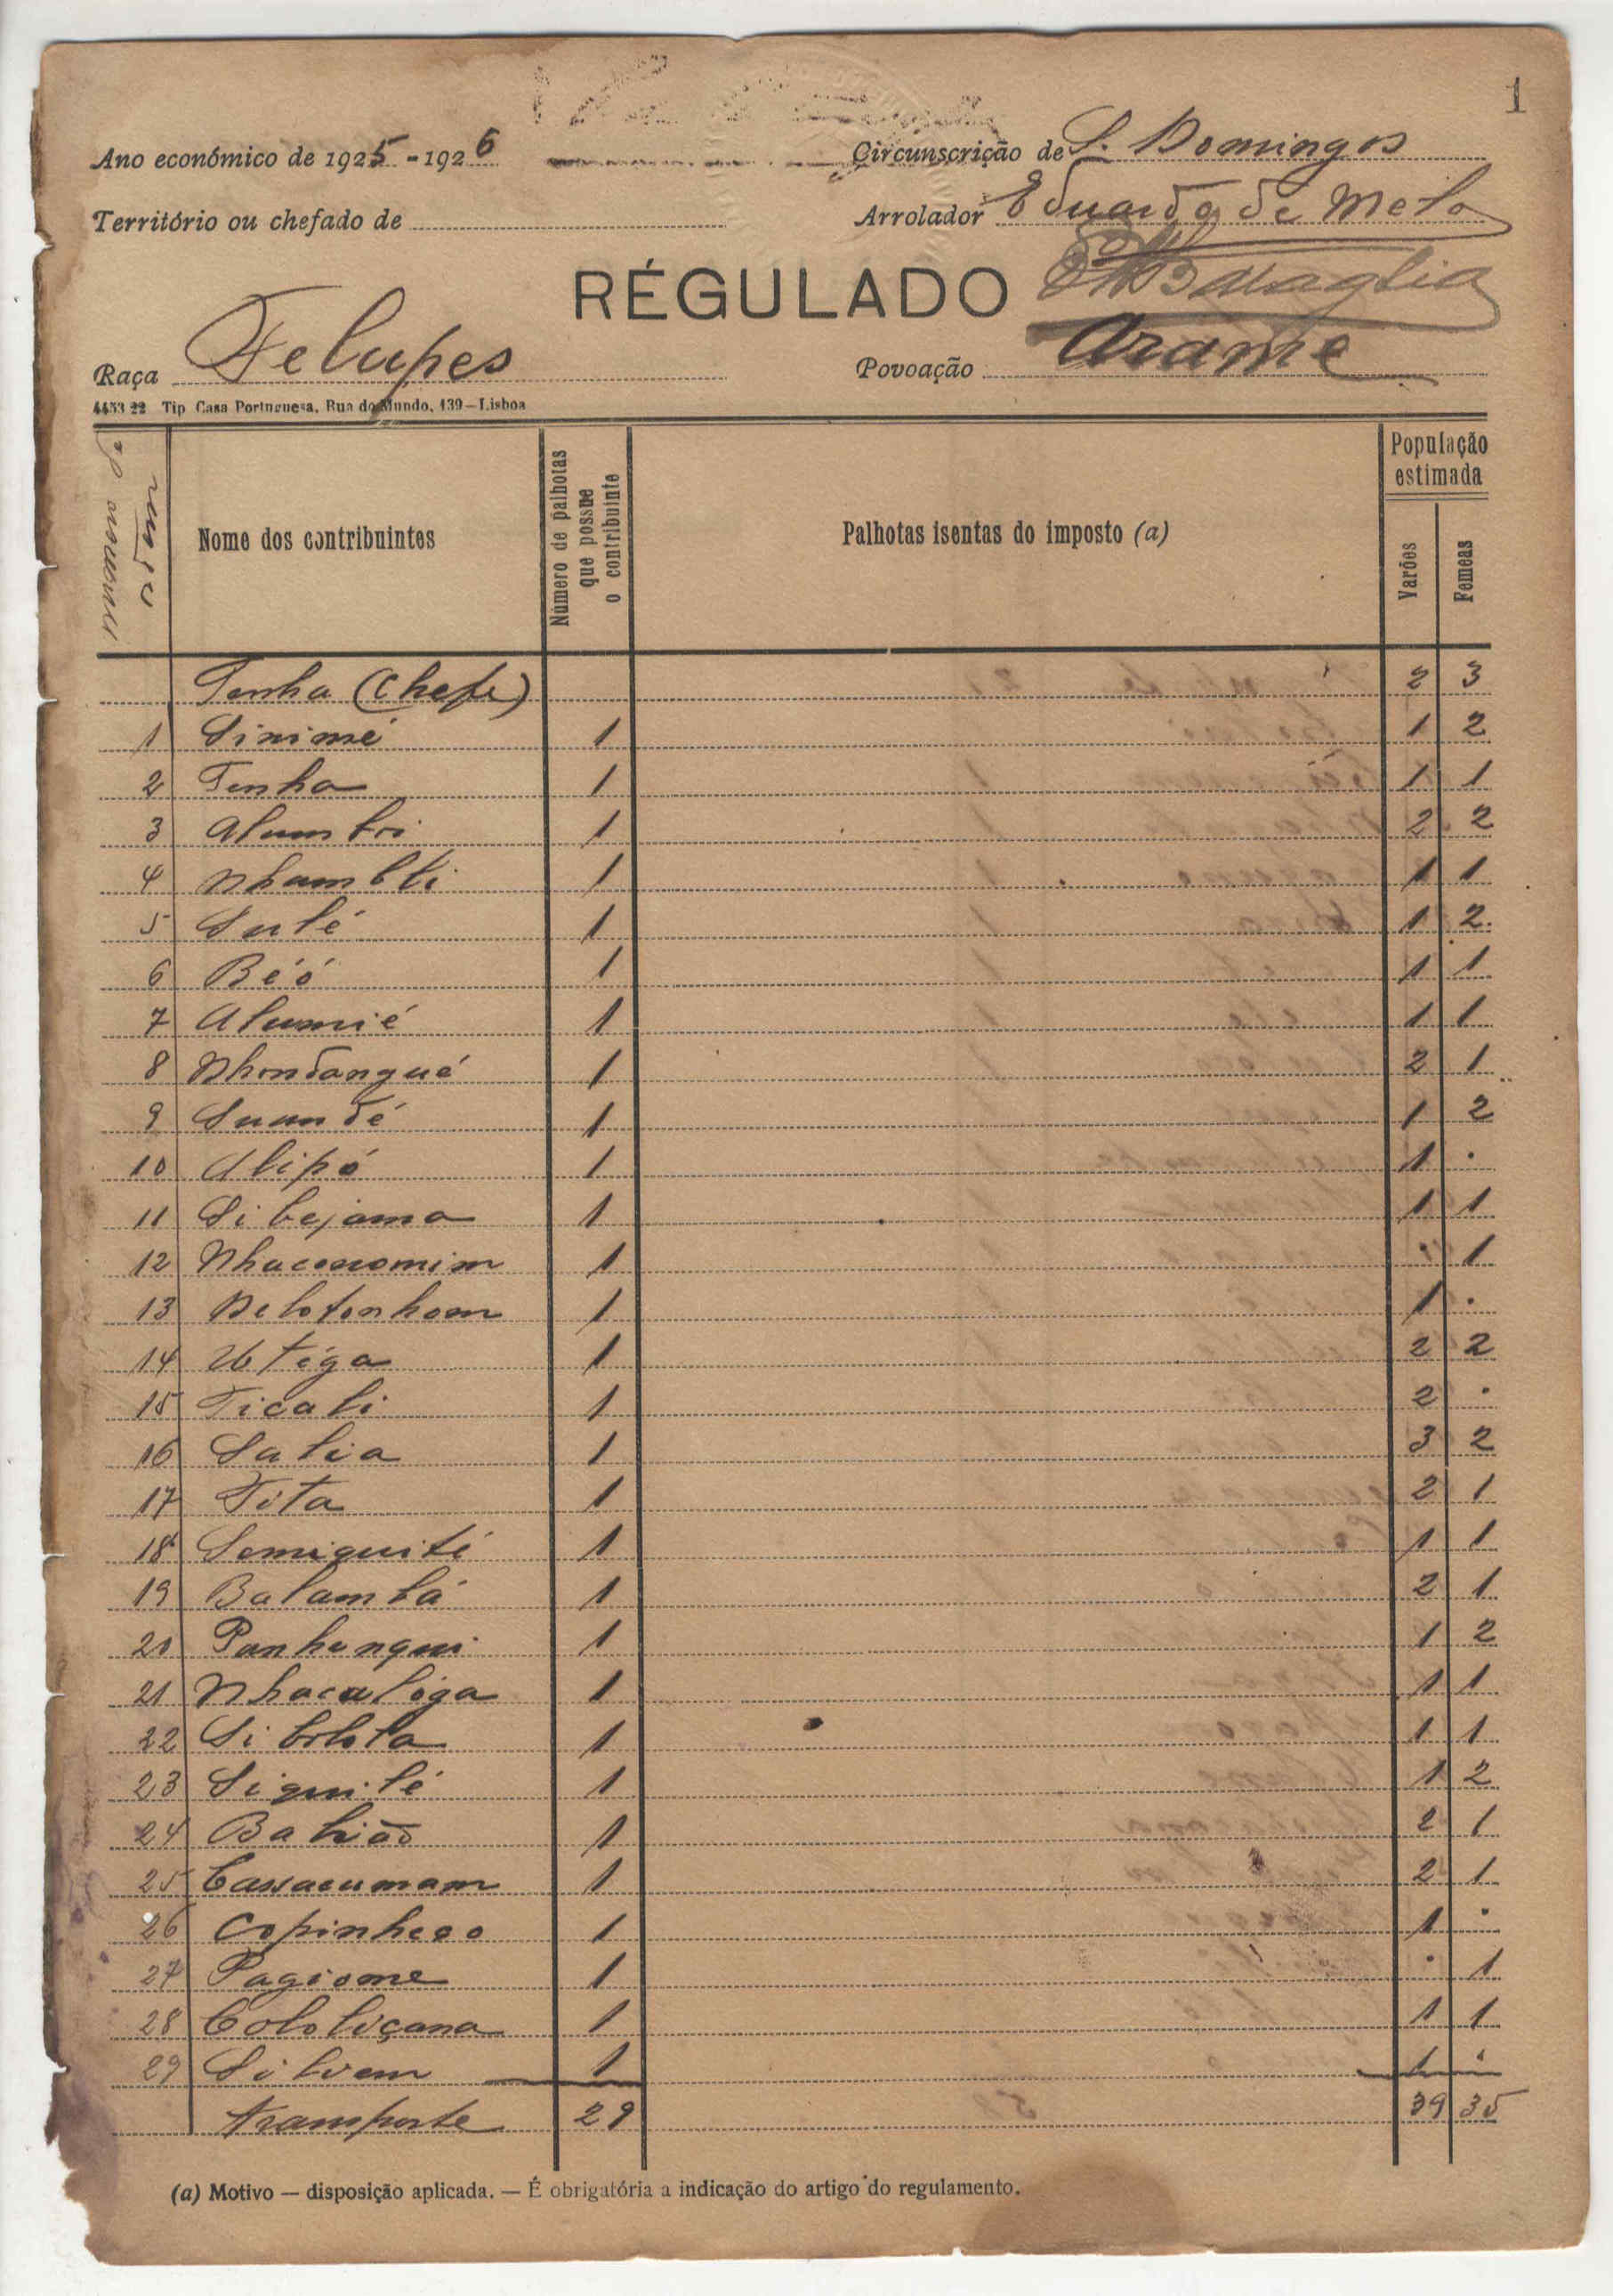 1
Ano económico de 1925-1926
Circunscrição de S. Domingos
Território ou chefado de
Arrolador Eduardo de Melo
RÉGULADO
Raça Felupes
Povoação Arame
4453 22 Tip Casa Portuguesa, Rua do Mundo, 139—Lisboa
Nome dos contribuintes
Número de palhotas que possue o contribuinte
Palhotas isentas do imposto (a)
População estimada
Varões
Femeas
Tenha (Chefe) 2 3
1 Sinimé 1 1 2
2 Tenha 1 1 1
3 1 2 2
4 1 1 1
5 Sulé 1 1 2
6 Béó 1 1 1
7 Alumié 1 1 1
8 Nhondangué 1 2 1
9 Suandé 1 1 2
10 Alipó 1 1 .
11 Sibejama 1 1 1
12 Nhaconomim 1 . 1
13 1 1 .
14 Utéga 1 2 2
15 Ticali 1 2 .
16 Salia 1 3 2
17 Tita 1 2 1
18 Semiquité 1 1 1
19 Balambá 1 2 1
20 Panhanqui 1 1 2
21 Nhacaloga 1 1 1
22 1 1 1
23 Siquilé 1 1 2
24 1 2 1
25 Cassacumam 1 2 1
26 1 1 .
27 Pagiome 1 . 1
28 Cololiçana 1 1 1
29 Silvem 1 1 .
Transporte 29 39 35
(a) Motivo — disposição aplicada. — É obrigatória a indicação do artigo do regulamento.